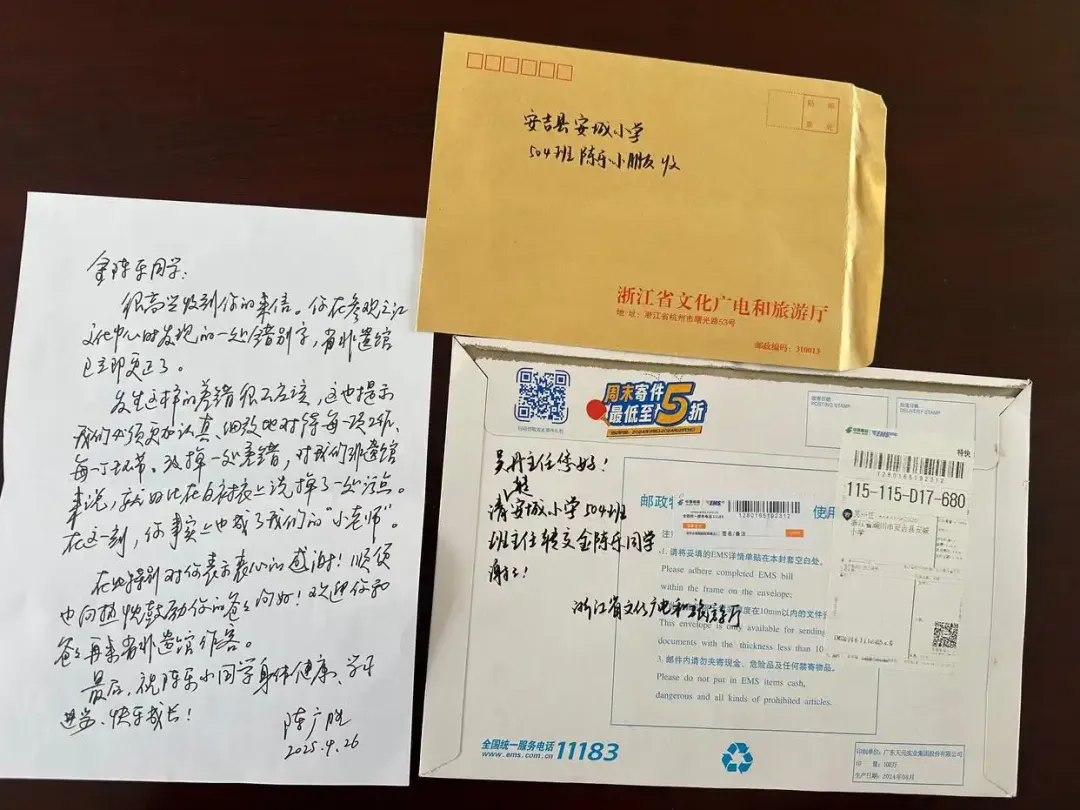 金陈乐同学:
很高兴收到你的来信。你在参观之江
文化中心时发现的一处错别字,省非遗馆
已立即更正了。
发生这样的差错很不应该,这也提示
我们必须更加认真、细致地对待每一项工作、
每一个环节。改掉一处差错,对我们非遗馆
来说,就好比在白衬衣上洗掉了一处污点。
在这一刻,你事实上也成了我们的“小老师”。
在此特别对你表示衷心的感谢!顺便
也向热忱鼓励你的爸爸问好!欢迎你和
爸爸再来省非遗馆作客。
最后,祝陈乐小同学身体健康、学习
进步、快乐成长!
陈广胜
2025.4.26
安吉县安城小学
504班 陈乐小朋友 收
贴 邮
票 处
浙江省文化广电和旅游厅
地 址:浙江省杭州市曙光路53号
邮政编码:310013
周末寄件
最低至5折
POSTING STAMP
DELIVERY STAMP
吴丹主任您好!
请安城小学504班
班主任转交金陈乐同学
谢谢!
浙江省文化广电和旅游厅
特快
1280165192312
115-115-D17-680
邮政
1280165192312
使用
1. 请将妥填的EMS详情单贴在本封套空白处。
Please adhere completed EMS bill
within the frame on the cavelope;
度在10mm以内的文件
This envelope is only available for sending
documents with the thickness less than 10
3. 邮件内请勿夹寄现金、危险品及任何禁寄物品。
Please do not put in EMS items cash,
dangerous and all kinds of prohibited articles.
全国统一服务电话 11183
www.ems.com.cn
印制单位:广东天元实业集团股份有限公司
生产日期:2024年08月